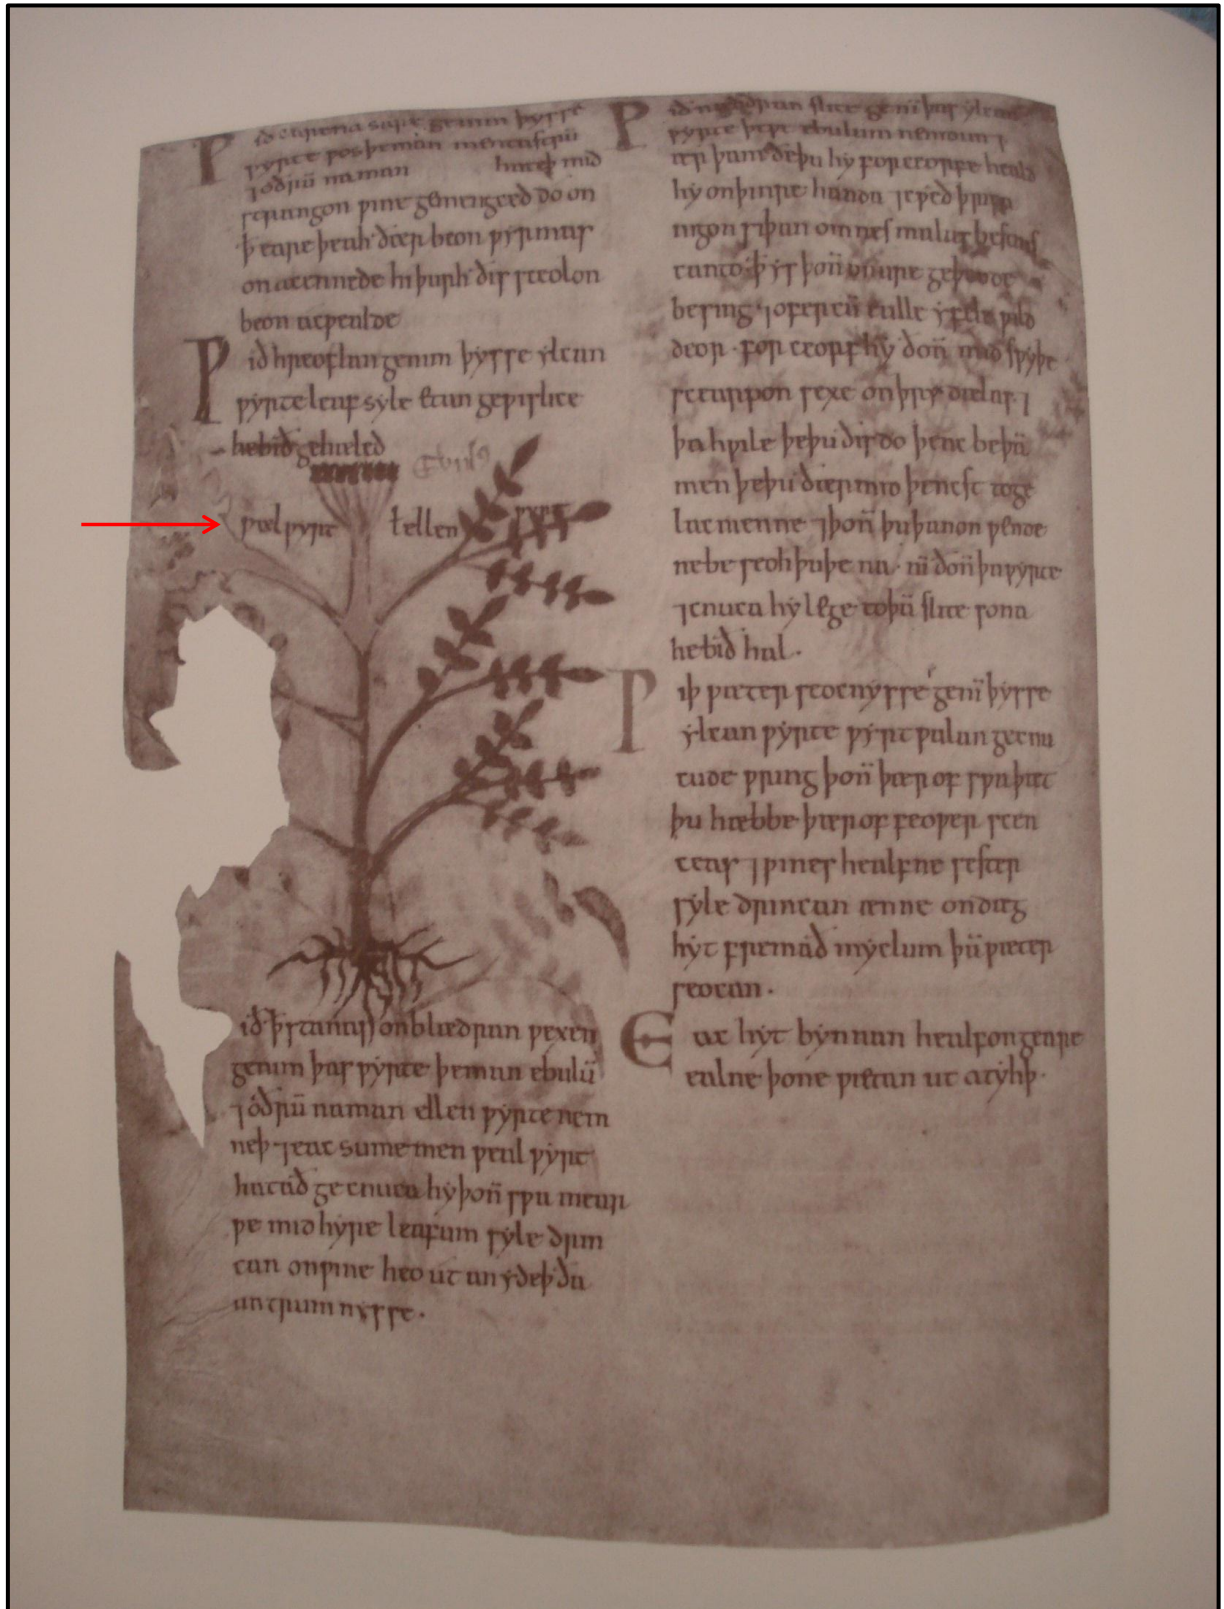 Ƿið earena sare genim þysse
ƿyrte ƿos þe man mentastrū
⁊ oðrū naman hateþ mid
strangon ƿine gemenged do on
þ̄ eare þeah ðær beon ƿyrmas
on acennede hi þurh ðis sceolon
beon acƿealde
Ƿið hreoflan genim þysse ylcan
ƿyrte leaf syle etan geƿislice
he bið gehæled
Ebulꝰ
ƿælƿyrt ł ellen ƿyrt
ið þ̄ stanas on blædran ƿexen
genim þas ƿyrte þe man ebulū
⁊ oðrū naman ellen ƿyrte nem
neþ ⁊ eac sume men ƿeal ƿyrt
hatað ge cnuca hy þon̄ sƿa mear
ƿe mid hyre leafum syle drin
can on ƿine heo ut anydeþ ða
untrumnysse.
Ƿið nædran slite genī þas ylcan
ƿyrte þe ƿe ebulum nemdun ⁊
ær þam ðe þu hy forceorfe heald
hy on þinre handa ⁊ cƿeð þriƿa
nigon siþan omnes malas bestias
canto þ̄ ys þon̄ on ure geþeode
besing ⁊ ofercū ealle yfele ƿild
deor. for ceorf hy ðon̄ mid sƿyþe
scearpon sexe on þry dælas. ⁊
þa hƿile þe þu ðis do þenc be þā
men þe þu ðærmid þencst to ge
lacmenne ⁊ þon̄ þu þanon ƿende
ne beseoh þu þe na. nī ðon̄ þa ƿyrte
⁊ cnuca hy lege to þā slite sona
he bið hal.
Ƿiþ ƿæter seocnysse genī þysse
ylcan ƿyrte ƿyrtƿalan gecnu
cude ƿring þon̄ þær of sƿa þæt
þu hæbbe þær of feoƿer scen
ceas ⁊ ƿines healfne sester
syle drincan ænne on dæg
hyt fremað myclum þā ƿæter
seocan.
Eac hyt bynnan healfon geare
ealne þone ƿætan ut atyhþ.